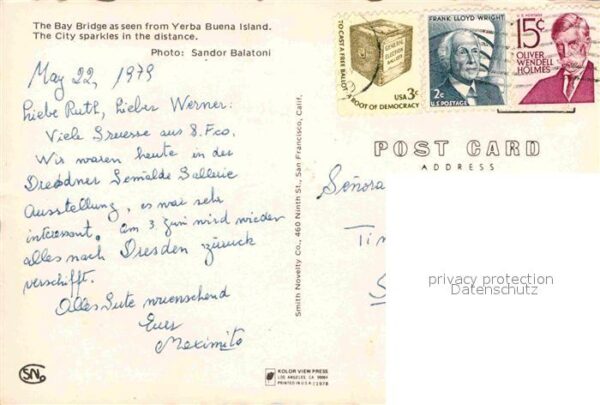 The Bay Bridge as seen from Yerba Buena Island.
The City sparkles in the distance.
Photo: Sandor Balatoni
TO CAST A FREE BALLOT A ROOT OF DEMOCRACY
GENERAL ELECTION BALLOT
USA 3c
FRANK LLOYD WRIGHT
2c
U.S. POSTAGE
U.S. POSTAGE
15c
OLIVER
WENDELL
HOLMES
May 22, 1979
Liebe Ruth, lieber Werner:
Viele Gruesse aus S. Fco.
Wir waren heute in der
Dresdner Gemälde Gallerie
Ausstellung, es war sehr
interessant. Am 3 Juni wird wieder
alles nach Dresden zurück
verschifft.
Alles Gute wuenschend
Euer
Maximito
Smith Novelty Co., 460 Ninth St., San Francisco, Calif.
POST CARD
ADDRESS
Señora
privacy protection
Datenschutz
SN
KOLOR VIEW PRESS
LOS ANGELES, CA
PRINTED IN U.S.A. / 1978